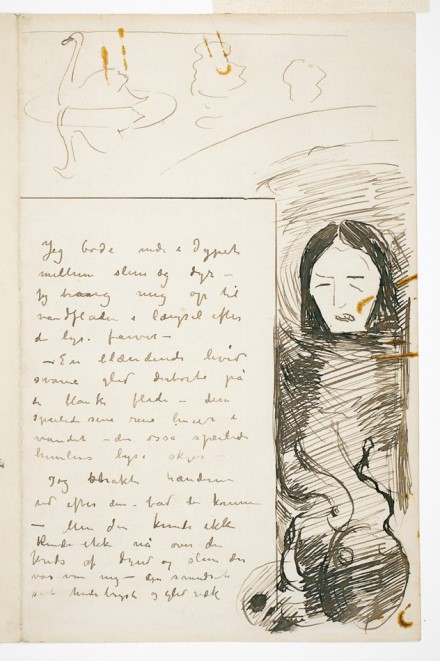 Jeg bode nede i dypet
mellem slim og dyr –
Jeg trang mig op til
vandfladen i længsel efter
de lyse farver –
– En blændende hvid
svane gled derborte på
de blanke flade – den
speilede sine rene linier i
vandet – der også speilede
himlens lyse skyer –
Jeg strakte hænderne
ud efter den – bad de komme
– Men den kunde ikke
Kunde ikke nå over den
kreds af dynd og slim der
var om mig – den
bryst og gled væk